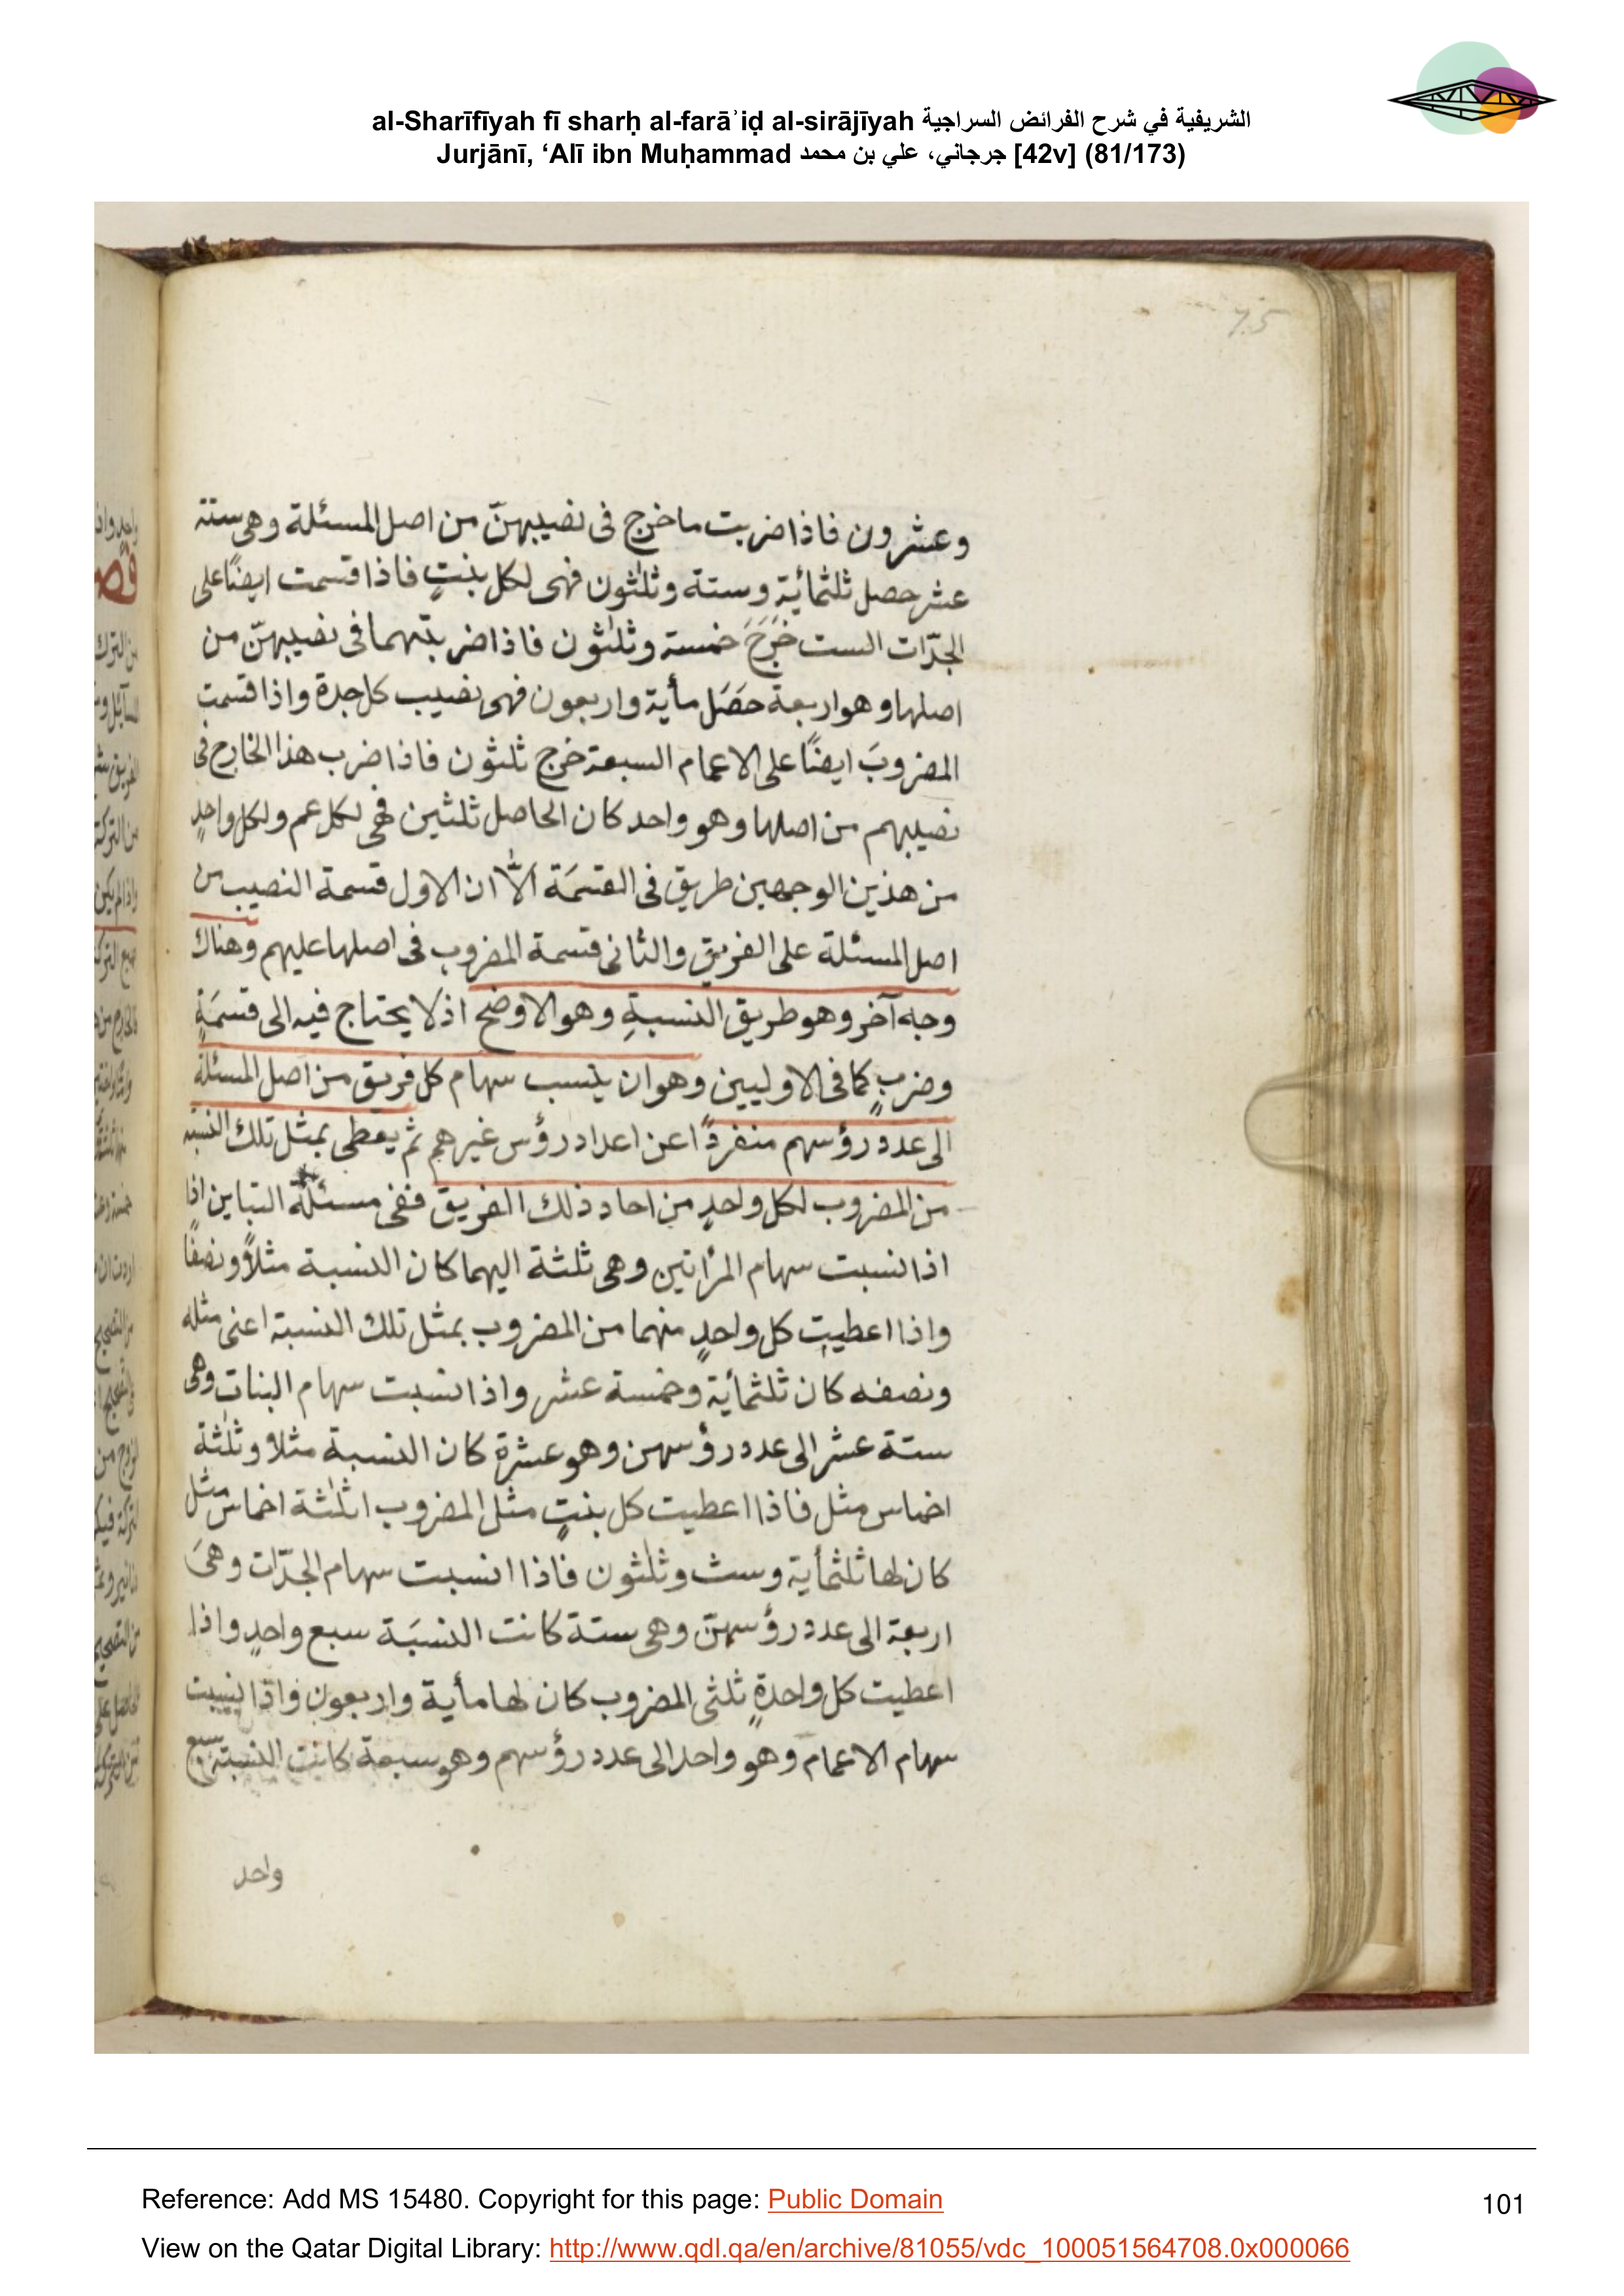 al-Sharīfīyah fī sharḥ al-farāʾiḍ al-sirājīyah الشريفية في شرح الفرائض السراجية
Jurjānī, ‘Alī ibn Muḥammad جرجاني، علي بن محمد [42v] (81/173)
وعشرون فاذا ضربت ما خرج فى نصيبهنّ من اصل المسئلة وهى ستة
عشر حصل ثلثمائة وستة وثلثون فهى لكل بنتٍ فاذا قسمت ايضًا على
الجدّات الست خَرَجَ خمسة وثلثون فاذا ضربتهما فى نصيبهنّ من
اصلها وهو اربعة حَصَل مأية واربعون فهى نصيب كل جدة واذا قسمت
المضروبَ ايضًا على الاعمام السبعة خرج ثلثون فاذا ضرب هذا الخارج فى
نصيبهم من اصلها وهو واحد كان الحاصل ثلثين فهى لكل عم ولكل واحدٍ
من هذين الوجهين طريق فى القسمَة الّا ان الاول قسمة النصيب من
اصل المسئلة على الفريق والثانى قسمة المضروب فى اصلها عليهم وهناك
وجه آخر وهو طريق النسبةِ وهو الاوضح اذ لا يحتاج فيه الى قسمَةٍ
وضربٍ كما فى الاوليين وهو ان ينسب سهام كل فريق من اصل المسئلة
الى عدد رؤسهم منفردًا عن اعداد رؤس غيرهم ثم يعطى بمثل تلك النسبة
من المضروب لكل واحدٍ من احاد ذلك الفريق ففى مسئلة التباين اذا
اذا نسبت سهام المرأتين وهى ثلثة اليهما كان النسبة مثلاً ونصفًا
واذا اعطيت كل واحدٍ منهما من المضروب بمثل تلك النسبة اعنى مثله
ونصفه كان ثلثمأية وخمسة عشر واذا نسبت سهام البنات وهى
ستة عشر الى عدد رؤسهن وهو عشرة كان النسبة مثلا وثلثة
اخماس مثل فاذا اعطيت كل بنتٍ مثل المضروب اثلثة اخماس مثل
كان لها ثلثمأية وست وثلثون فاذا انسبت سهام الجدّات وهىَ
اربعة الى عدد رؤسهنّ وهى ستة كانت النسبَة سبع واحدٍ واذا
اعطيت كل واحدةٍ ثلثى المضروب كان لها مأية واربعون واذا نسبت
سهام الاعمام وهو واحد الى عدد رؤسهم وهو سبعة كانت النسبة سبع
واحد
Reference: Add MS 15480. Copyright for this page: Public Domain
101
View on the Qatar Digital Library: http://www.qdl.qa/en/archive/81055/vdc_100051564708.0x000066